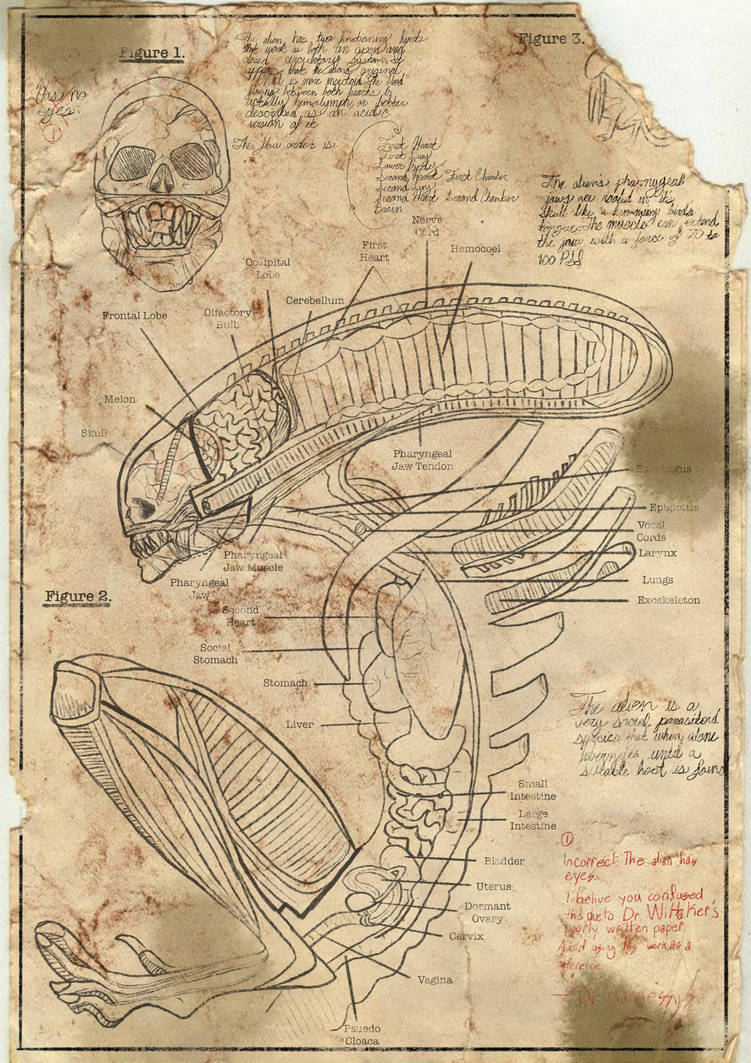 Figure 1.
The alien has two functioning hearts
that work as both an open and
closed circulatory system. It
appears that the aliens original
is more insectoid. The "blood"
flowing between both hearts is
actually hemolymph, or better
described as an acidic
version of it
Figure 3.
Has no
eyes.
1
The flow order is:
First Heart
First Lung
Lower Body
Second Heart First Chamber
Second Lung
Second Heart Second Chamber
Brain
The aliens pharyngeal
jaws are rooted in its
skull like a humming birds
tongue. The muscles can extend
the jaw with a force of 70 to
100 PSI
Nerve
Cord
First
Heart
Hemocoel
Occipital
Lobe
Cerebellum
Frontal Lobe
Olfactory
Bulb
Melon
Skull
Pharyngeal
Jaw Tendon
Esophagus
Epiglottis
Vocal
Cords
Larynx
Pharyngeal
Jaw Muscle
Lungs
Pharyngeal
Jaw
Exoskeleton
Figure 2.
Second
Heart
Social
Stomach
Stomach
Liver
The alien is a
very social parasitoid
species that when alone
hibernates until a
suitable host is found
Small
Intestine
Large
Intestine
1
Incorrect The alien has
eyes.
I belive you confused
this due to Dr. Wittaker's
poorly written paper
Avoid using his work as a
reference
Bladder
Uterus
Dormant
Ovary
Cervix
Vagina
Psuedo
Cloaca